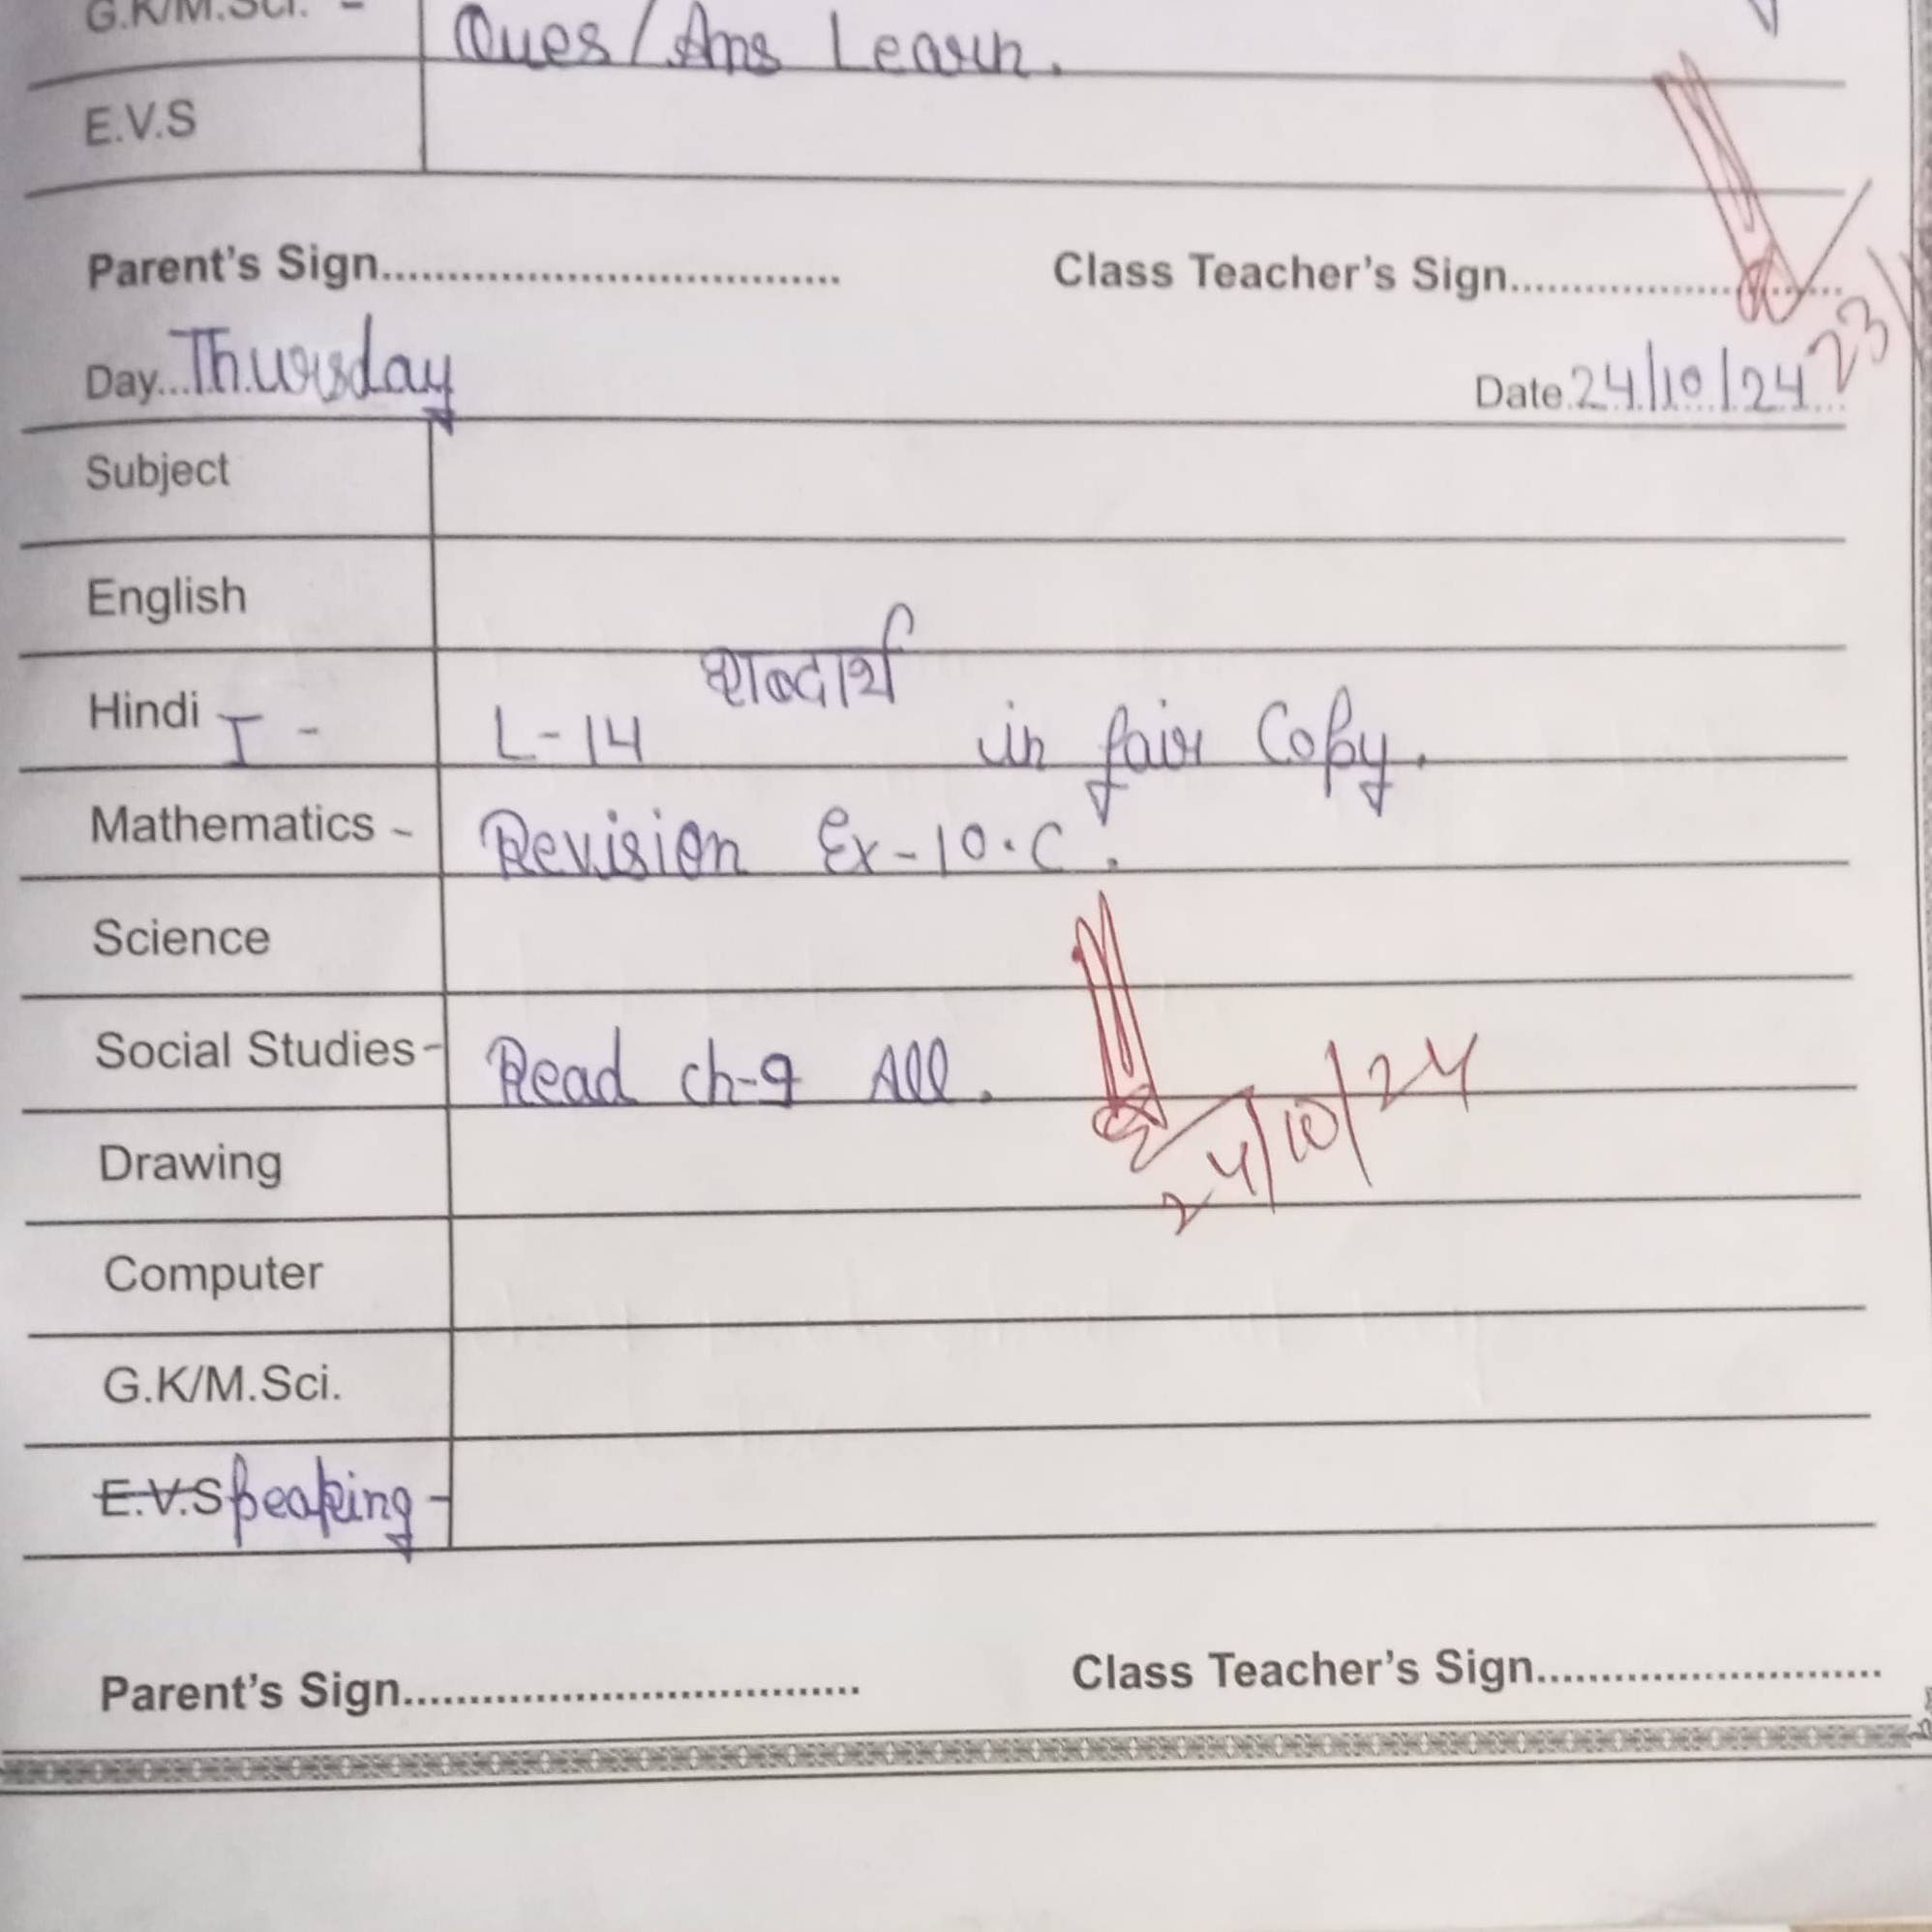 G.K/M.Sci. - Ques/Ans Learn.
E.V.S
Parent's Sign................................... Class Teacher's Sign.........................
23/
Day...Thursday Date.24/10/24...
Subject
English
Hindi I - L-14 शब्दार्थ in fair Copy.
Mathematics - Revision Ex-10.C.
Science
Social Studies - Read ch-9 All.
24/10/24
Drawing
Computer
G.K/M.Sci.
E.V.Speaking -
Parent's Sign................................... Class Teacher's Sign...........................